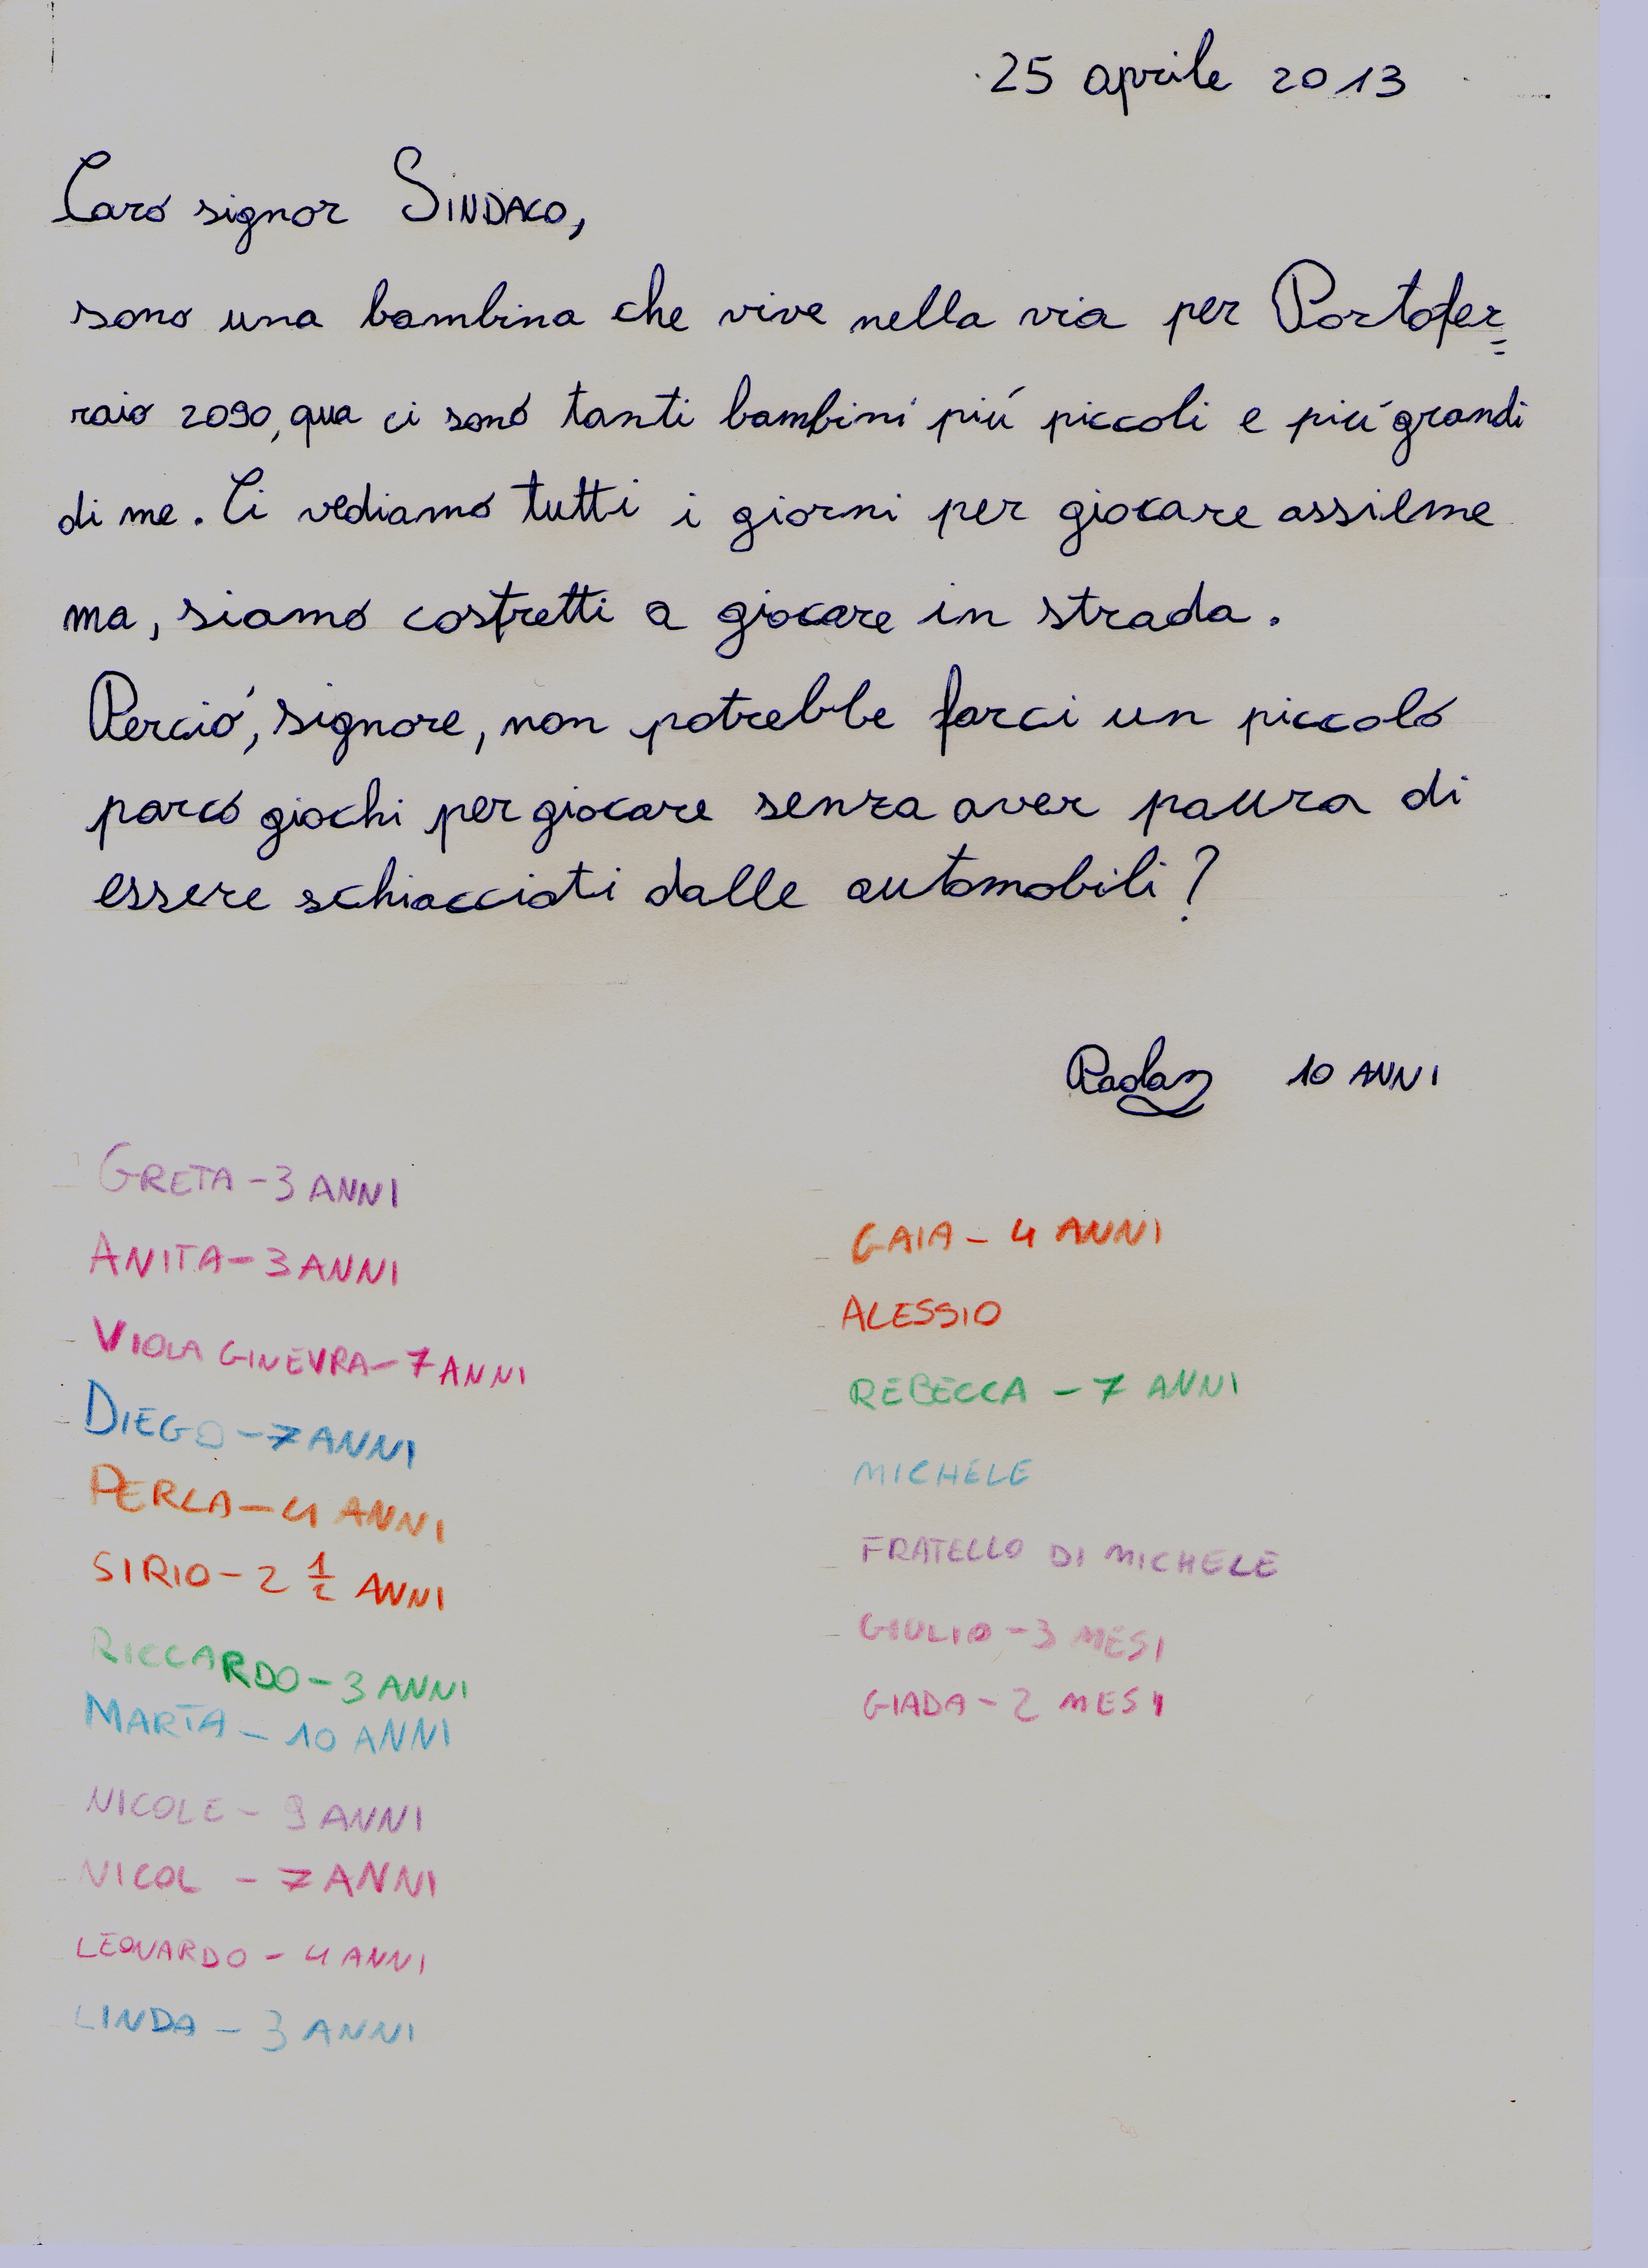 25 aprile 2013
Caro signor SINDACO,
sono una bambina che vive nella via per Portofer=
raio 2090, qua ci sono tanti bambini piú piccoli e piú grandi
di me. Ci vediamo tutti i giorni per giocare assieme
ma, siamo costretti a giocare in strada.
Perció, signore, non potrebbe farci un piccolo
parco giochi per giocare senza aver paura di
essere schiacciati dalle automobili?
Paola 10 ANNI
GRETA - 3 ANNI
ANITA - 3 ANNI
VIOLA GINEVRA - 7 ANNI
DIEGO - 7 ANNI
PERLA - 4 ANNI
SIRIO - 2 1/2 ANNI
RICCARDO - 3 ANNI
MARTA - 10 ANNI
NICOLE - 9 ANNI
NICOL - 7 ANNI
LEONARDO - 4 ANNI
LINDA - 3 ANNI
GAIA - 4 ANNI
ALESSIO
REBECCA - 7 ANNI
MICHELE
FRATELLO DI MICHELE
GIULIO - 3 MESI
GIADA - 2 MESI